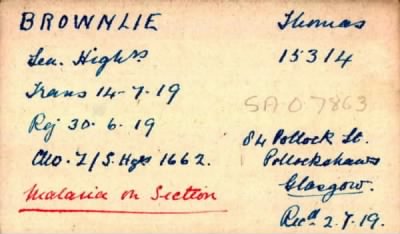 BROWNLIE Thomas
Sea. Highrs 15314
Trans 14-7-19
SAO 7863
Rej 30.6.19
84 Pollock St.
Also. 2/S. Hgrs 1662.
Pollockshaws
Glasgow.
Malaria on Section
Recd 2.7.19.